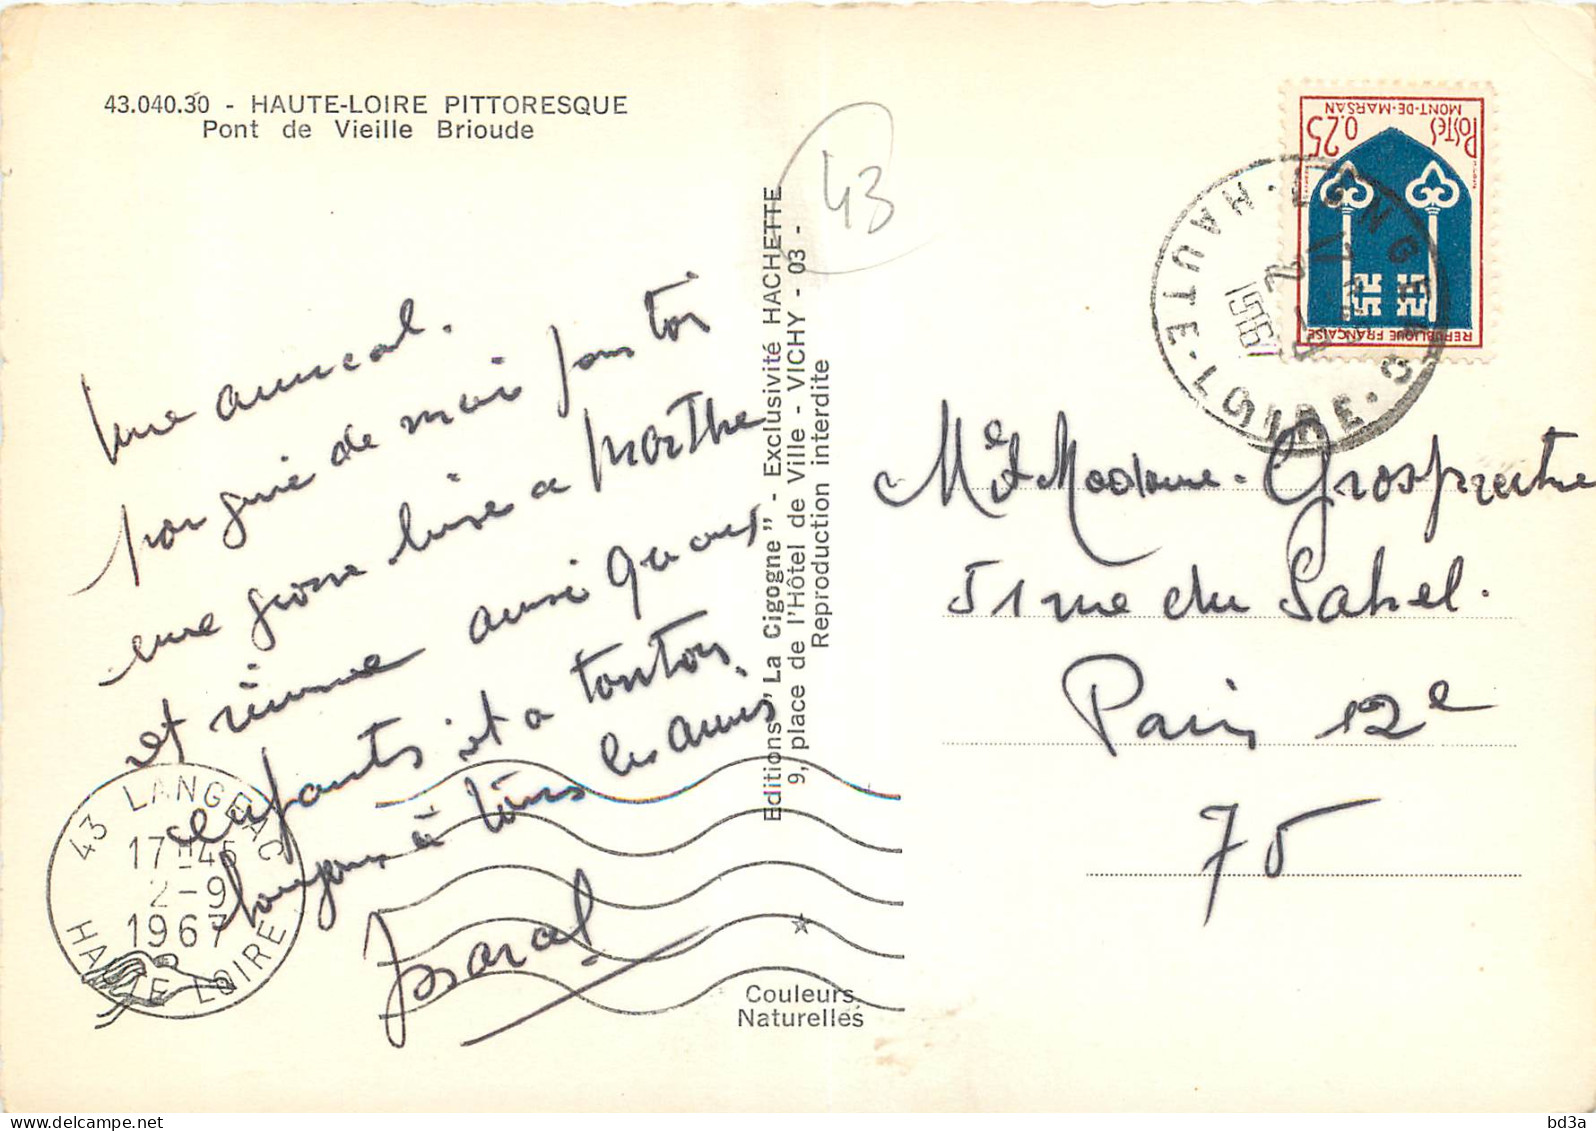 43.040.30 - HAUTE-LOIRE PITTORESQUE
Pont de Vieille Brioude
43
Une amical.
pour toi
une grosse bise a Marthe
et ainsi qu aux
enfants et a tonton
toujours à tous les amis
Editions "La Cigogne" - Exclusivité HACHETTE
9, place de l'Hôtel de Ville - VICHY - 03 -
Reproduction interdite
Couleurs
Naturelles
POSTES 0.25
MONT-DE-MARSAN
REPUBLIQUE FRANÇAISE
LANGEAC
HAUTE-LOIRE
43 LANGEAC
17H45
2-9
1967
HAUTE LOIRE
Mr et Madame Grospretre
51 rue du Sahel.
Paris 12e
75
bd3a